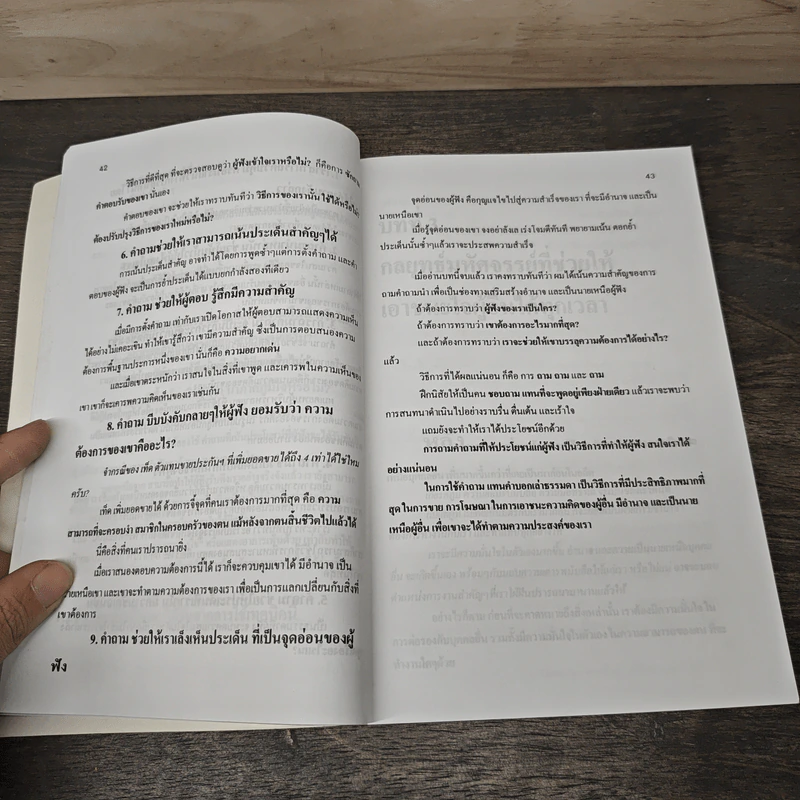 42
วิธีการที่ดีที่สุด ที่จะตรวจสอบดูว่า ผู้ฟังเข้าใจเราหรือไม่? ก็คือการ
คำตอบรับของเขา นั่นเอง
คำตอบของเขา จะช่วยให้เราทราบทันทีว่า วิธีการของเรานั้น ใช้ได้หรือไม่?
ต้องปรับปรุงวิธีการของเราใหม่หรือไม่?
6. คำถามช่วยให้เราสามารถเน้นประเด็นสำคัญๆได้
การเน้นประเด็นสำคัญ อาจทำได้โดยการพูดซ้ำๆแต่การตั้งคำถาม และคำ
ตอบของผู้ฟัง จะเป็นการย้ำประเด็นได้แบบยกกำลังสองทีเดียว
7. คำถาม ช่วยให้ผู้ตอบ รู้สึกมีความสำคัญ
เมื่อมีการตั้งคำถาม เท่ากับเราเปิดโอกาสให้ผู้ตอบสามารถแสดงความเห็น
ได้อย่างไม่เคอะเขิน ทำให้เขารู้สึกว่า เขามีความสำคัญ ซึ่งเป็นการตอบสนองความ
ต้องการพื้นฐานประการหนึ่งของเขา นั่นก็คือ ความอยากเด่น
และเมื่อเขาตระหนักว่า เราสนใจในสิ่งที่เขาพูด และเคารพในความเห็นของ
เขา เขาก็จะเคารพความคิดเห็นของเราเช่นกัน
8. คำถาม บีบบังคับกลายๆให้ผู้ฟัง ยอมรับว่า ความ
ต้องการของเขาคืออะไร?
จำกรณีของ เท็ด ตัวแทนขายประกันฯ ที่เพิ่มยอดขายได้ถึง 4 เท่าได้ใช่ไหม
ครับ?
เท็ด เพิ่มยอดขายได้ ด้วยการจี้จุดที่คนเราต้องการมากที่สุด คือ ความ
สามารถที่จะครอบงำ สมาชิกในครอบครัวของตน แม้หลังจากตนสิ้นชีวิตไปแล้วได้
นี่คือสิ่งที่คนเราปรารถนายิ่ง
เมื่อเราสนองตอบความต้องการนี้ได้ เราก็จะควบคุมเขาได้ มีอำนาจ เป็น
นายเหนือเขา และเขาจะทำตามความต้องการของเรา เพื่อเป็นการแลกเปลี่ยนกับสิ่งที่
เขาต้องการ
9. คำถาม ช่วยให้เราเล็งเห็นประเด็น ที่เป็นจุดอ่อนของผู้
ฟัง
43
จุดอ่อนของผู้ฟัง คือกุญแจไขไปสู่ความสำเร็จของเรา ที่จะมีอำนาจ และเป็น
นายเหนือเขา
เมื่อรู้จุดอ่อนของเขา จงอย่าลังเล เร่งโจมตีทันที พยายามเน้น ตอกย้ำ
ประเด็นนั้นซ้ำๆแล้วเราจะประสพความสำเร็จ
เมื่ออ่านบทนี้จบแล้ว เราคงทราบทันทีว่า ผมได้เน้นความสำคัญของการ
ถามคำถามนำ เพื่อเป็นช่องทางเสริมสร้างอำนาจ และเป็นนายเหนือผู้ฟัง
ถ้าต้องการทราบว่า ผู้ฟังของเราเป็นใคร?
ถ้าต้องการทราบว่า เขาต้องการอะไรมากที่สุด?
และถ้าต้องการทราบว่า เราจะช่วยให้เขาบรรลุความต้องการได้อย่างไร?
แล้ว
วิธีการที่ได้ผลแน่นอน ก็คือ การ ถาม ถาม และ ถาม
ฝึกนิสัยให้เป็นคน ชอบถาม แทนที่จะพูดอยู่เพียงฝ่ายเดียว แล้วเราจะพบว่า
การสนทนาดำเนินไปอย่างราบรื่น ตื่นเต้น และเร้าใจ
แถมยังจะทำให้เราได้ประโยชน์อีกด้วย
การถามคำถามที่ให้ประโยชน์แก่ผู้ฟัง เป็นวิธีการที่ทำให้ผู้ฟัง สนใจเราได้
อย่างแน่นอน
ในการใช้คำถาม แทนคำบอกเล่าธรรมดา เป็นวิธีการที่มีประสิทธิภาพมากที่
สุด ในการขาย การโฆษณา ในการเอาชนะความคิดของผู้อื่น มีอำนาจ และเป็นนาย
เหนือผู้อื่น เพื่อเขาจะได้ทำตามความประสงค์ของเรา